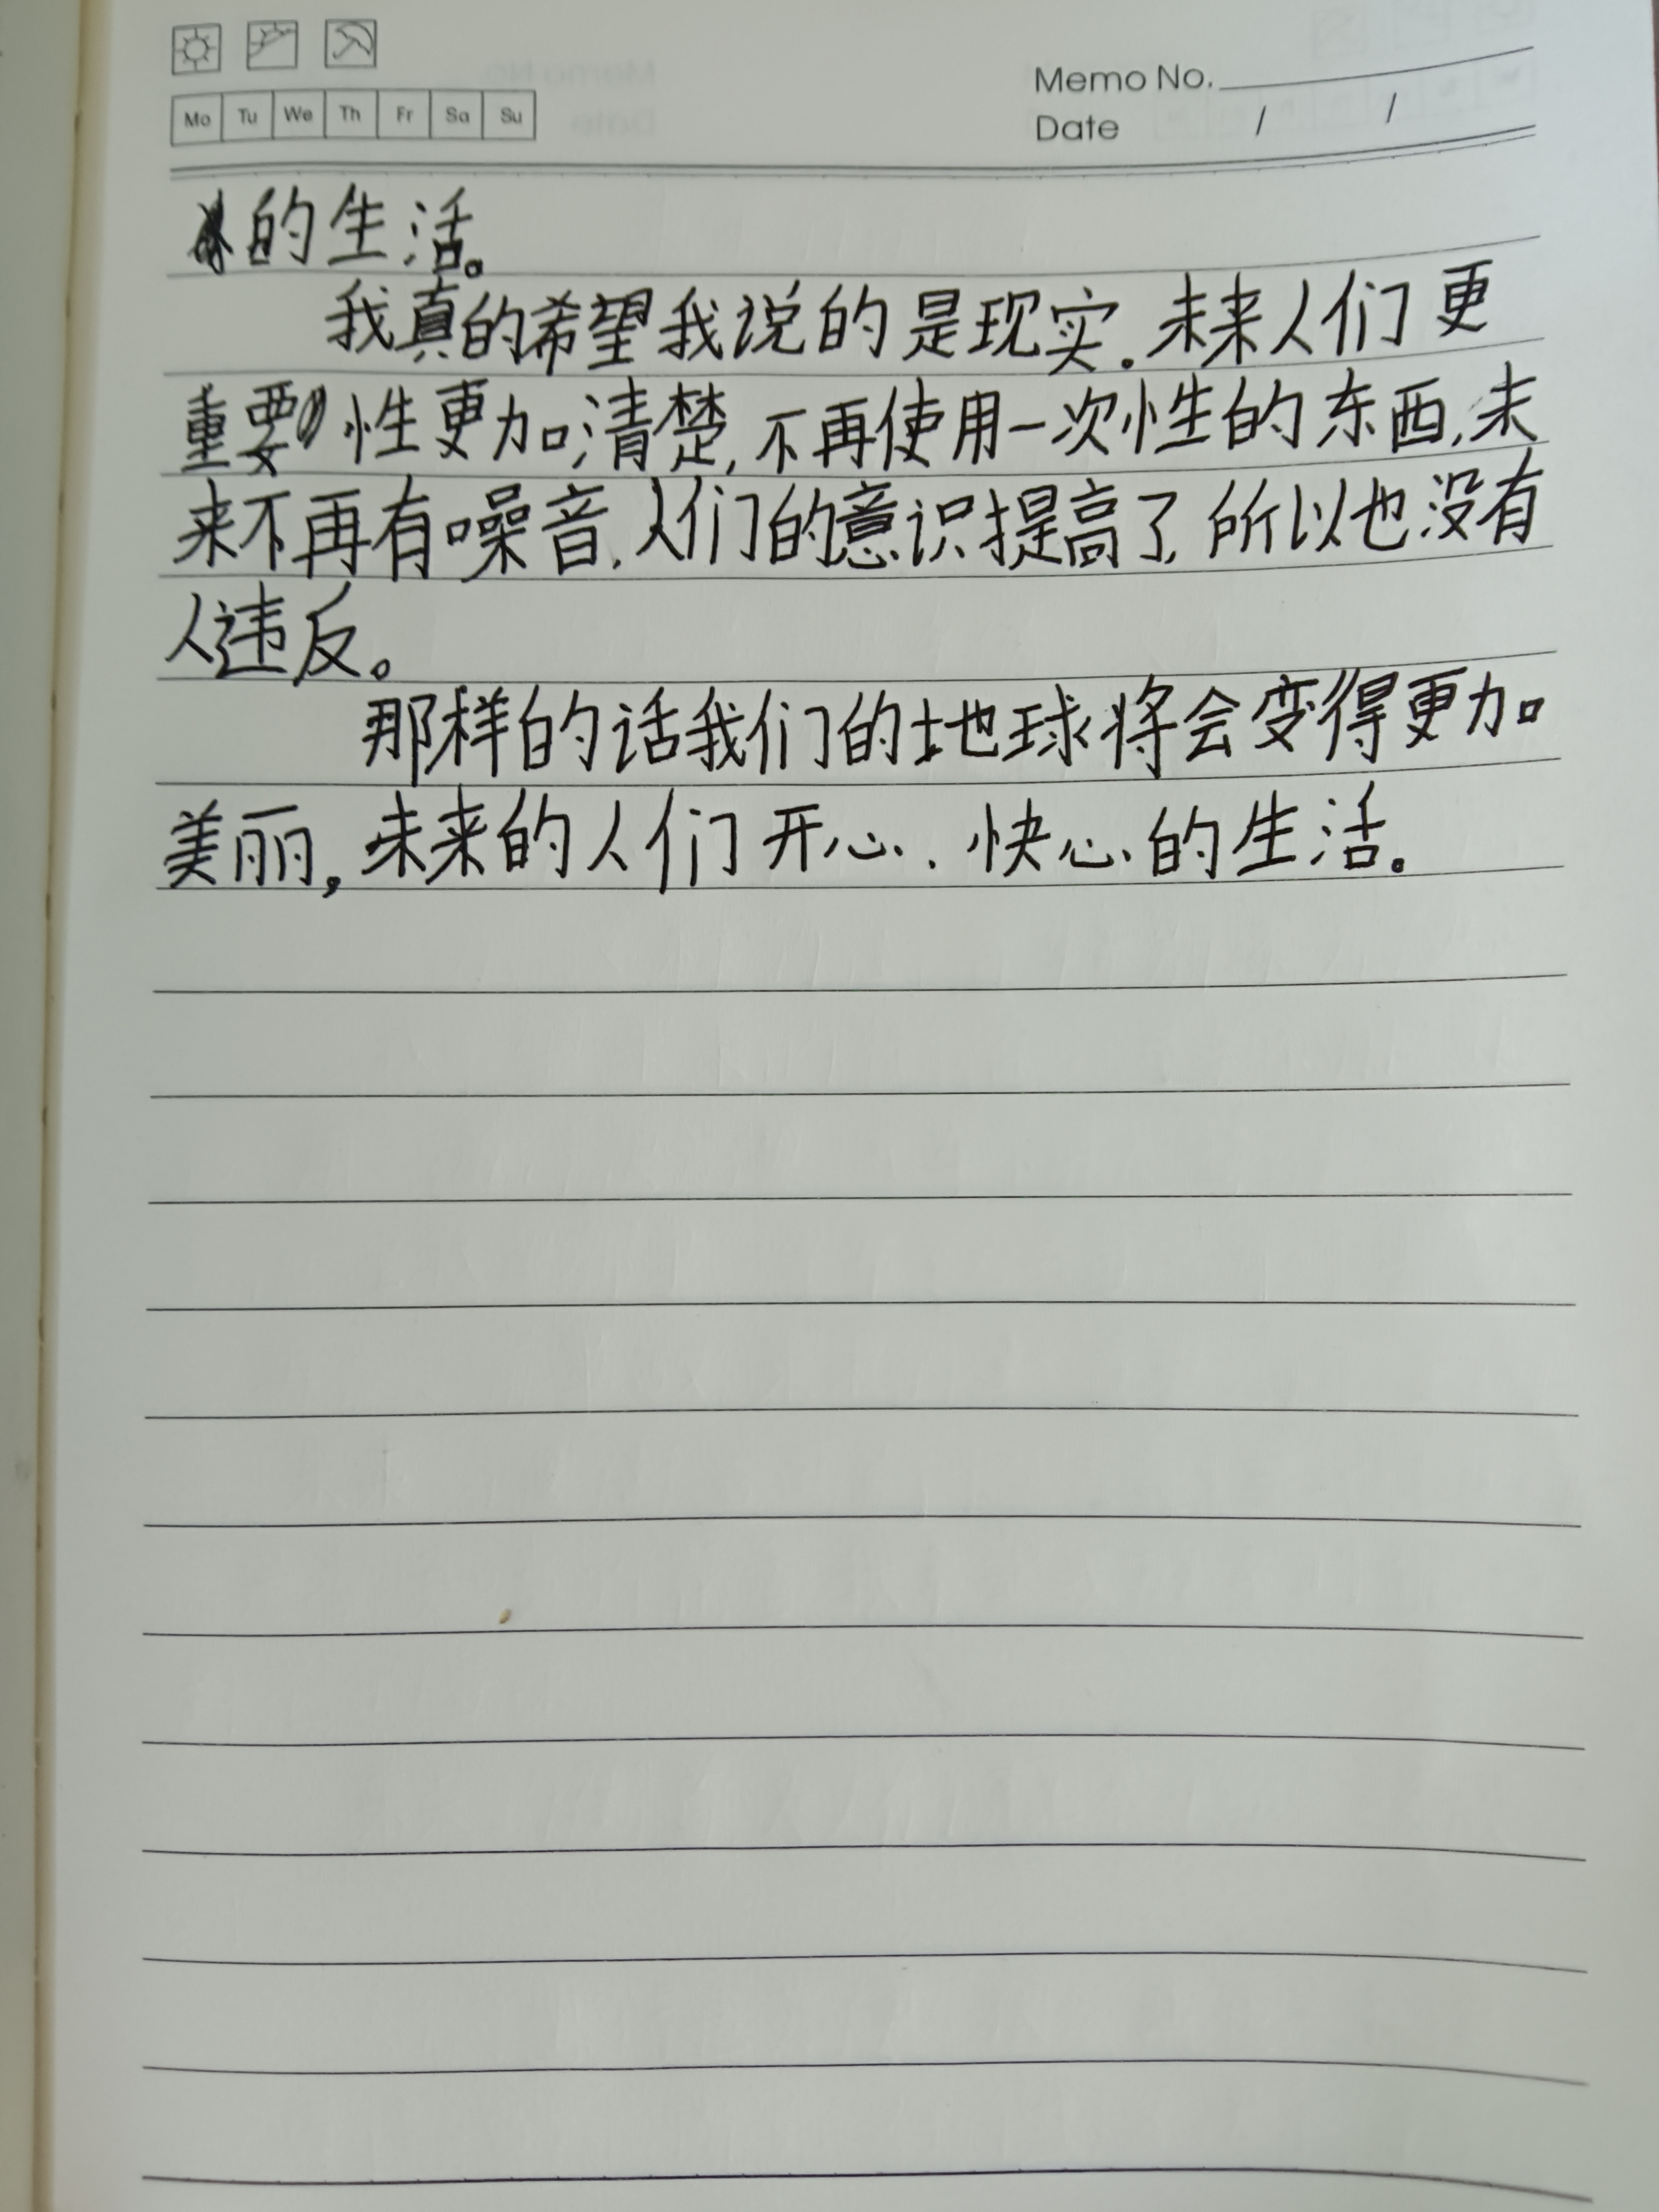 Mo Tu We Th Fr Sa Su
Memo No.
Date / /
的生活。
我真的希望我说的是现实.未来人们更
重要性更加清楚,不再使用一次性的东西,未
来不再有噪音.人们的意识提高了,所以也没有
人违反。
那样的话我们的地球将会变得更加
美丽,未来的人们开心、快心的生活。